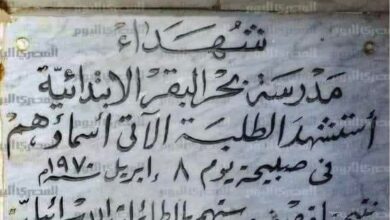 شهداء
مدرسة بحر البقر الابتدائية
أستشهد الطلبة الآتى أسماؤهم
فى صبيحة يوم ٨ أبريل ١٩٧٠
الإسرائيلية
المصري اليوم